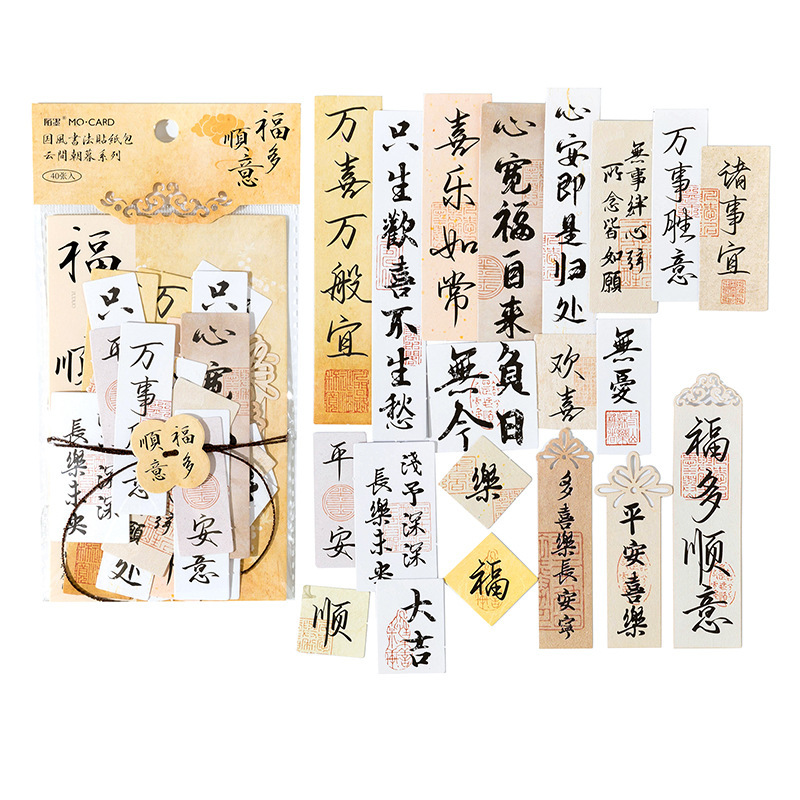 MO·CARD
因風書法貼紙包
云間朝暮系列
40张入
福多
順意
福
順
只
万
只
平
心寬
万事
意
長樂未央
深深
安
意
处
福多
順意
万喜万般宜
只生歡喜不生愁
喜乐如常
心宽福自来
心安即是归处
無事絆心弦
所念皆如願
万事胜意
諸事宜
負日
無今
欢喜
無憂
平安
淺予深深
長樂未央
樂
福
顺
大吉
多喜樂長安寧
平安喜樂
福多顺意